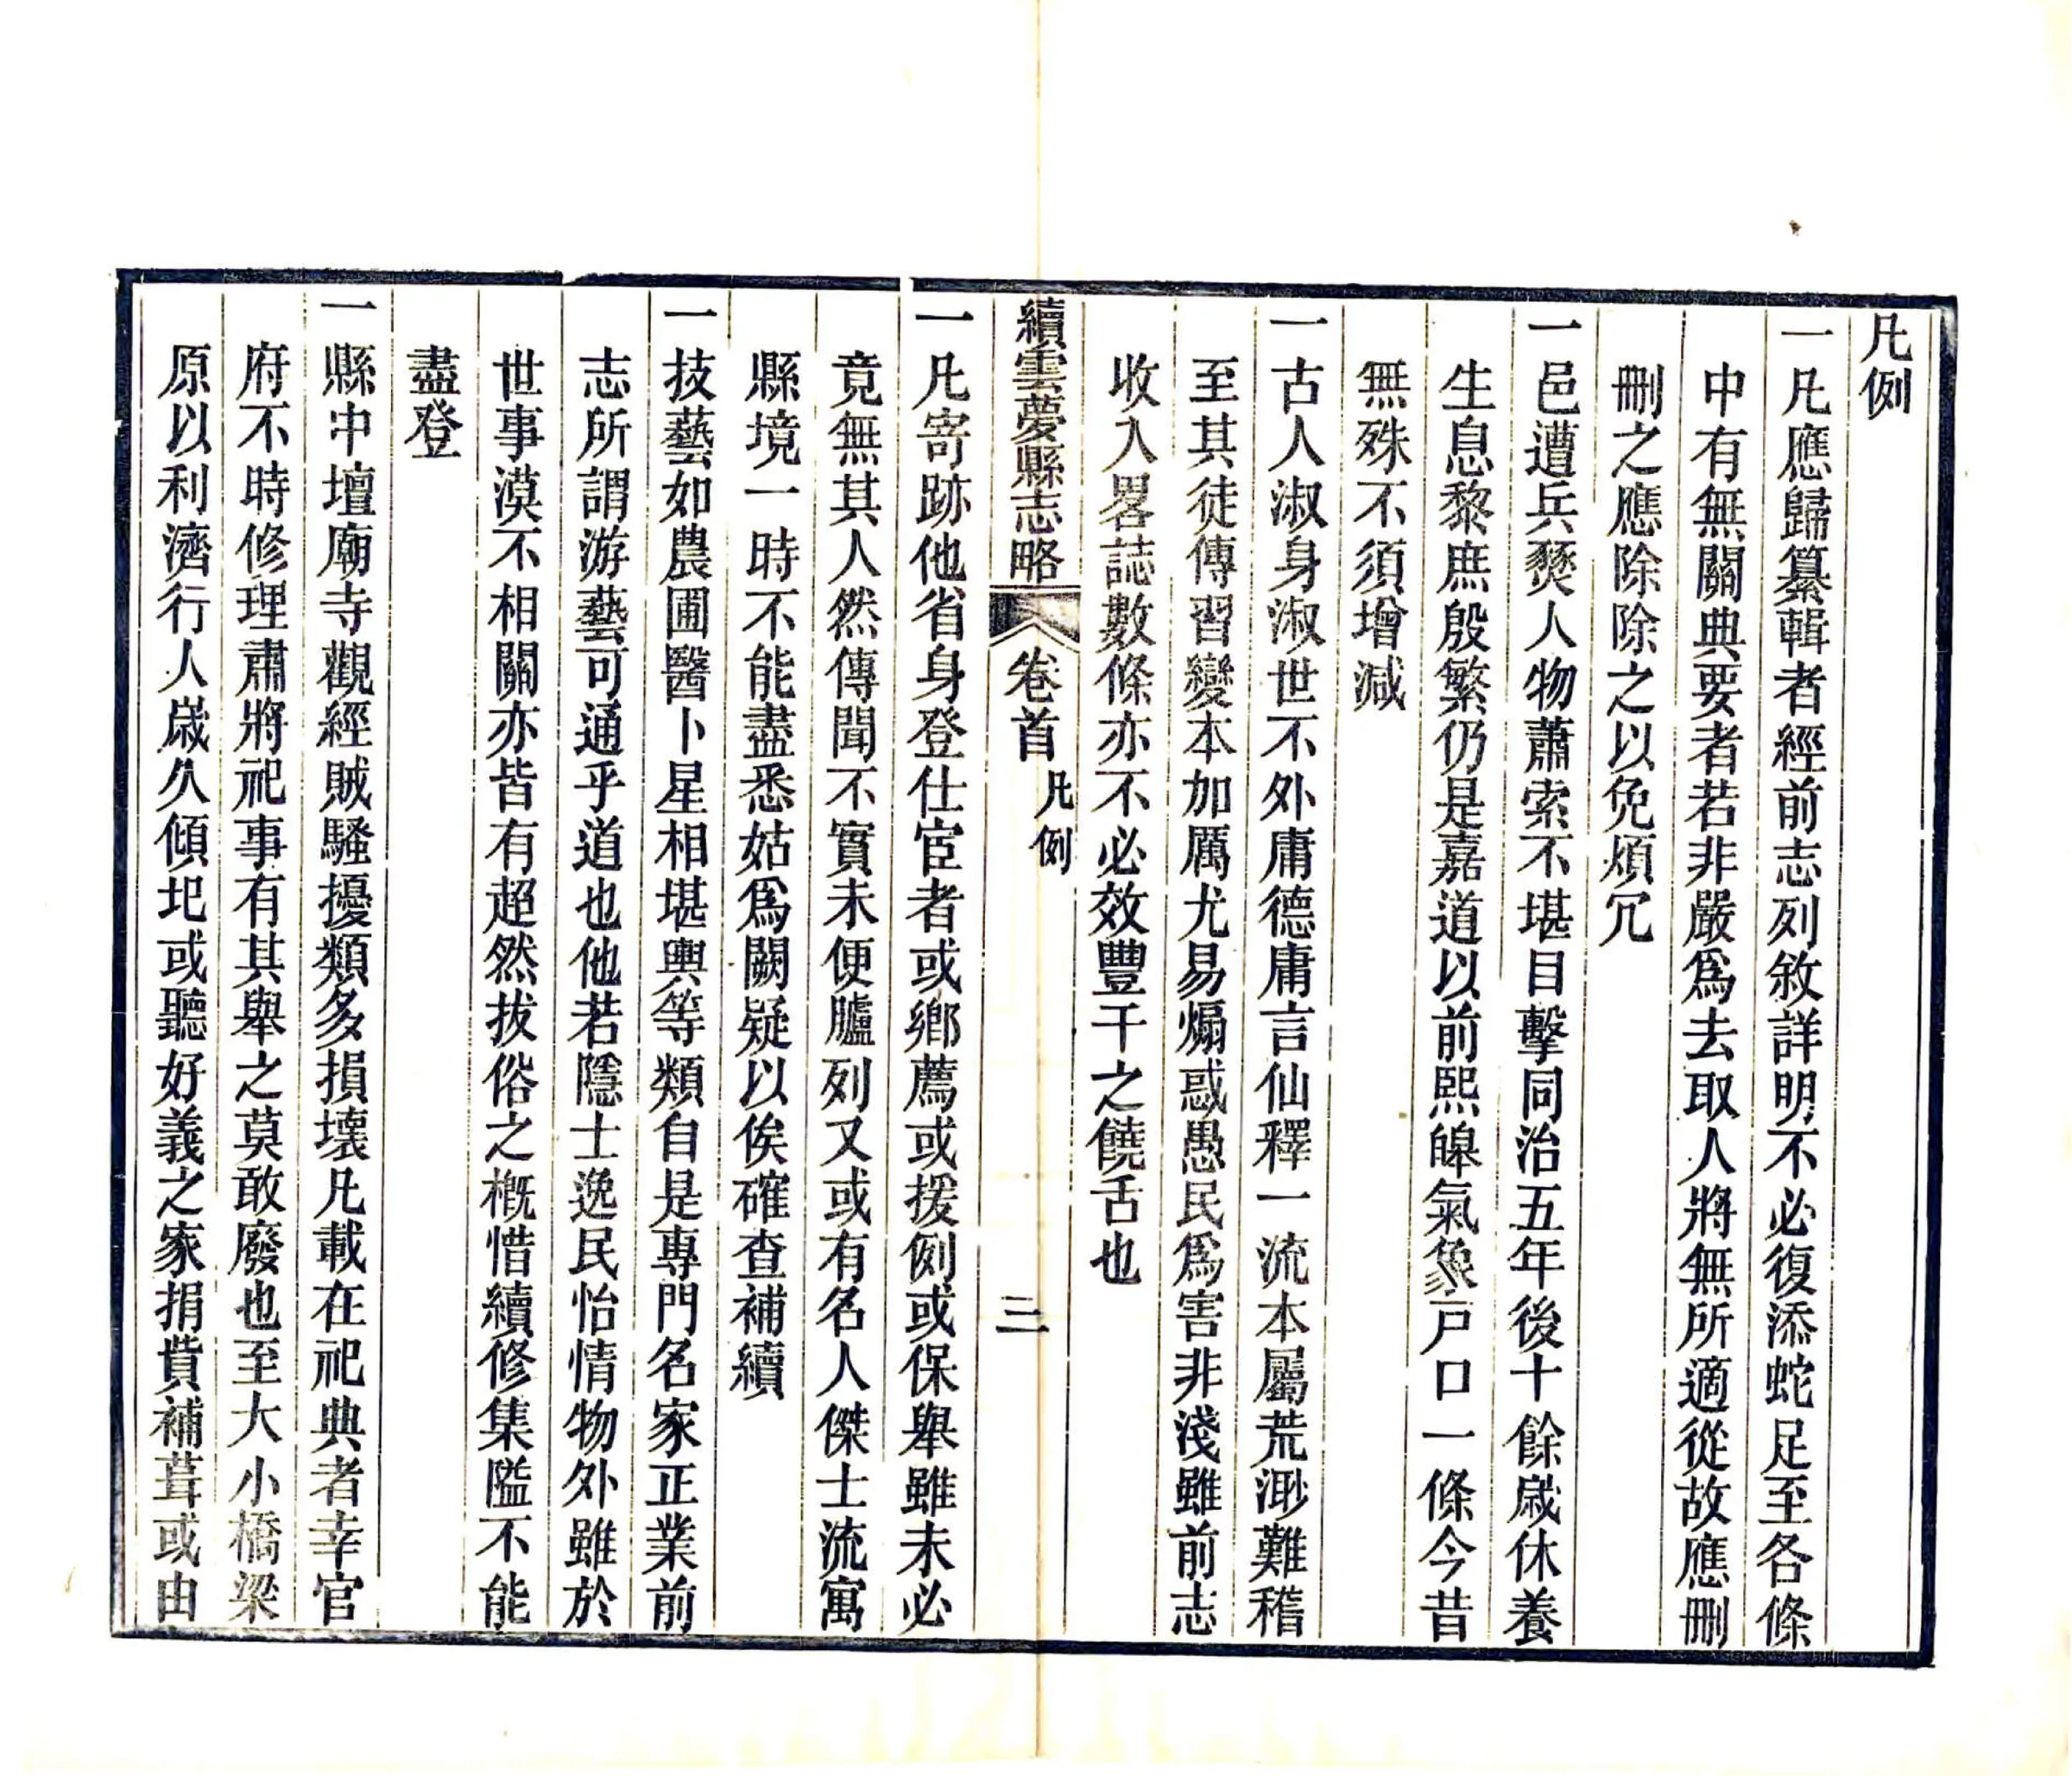 凡例
一凡應歸纂輯者經前志列敘詳明不必復添蛇足至各條
中有無關典要者若非嚴爲去取人將無所適從故應刪
刪之應除除之以免煩冗
一邑遭兵燹人物蕭索不堪目擊同治五年後十餘歲休養
生息黎庶殷繁仍是嘉道以前熙皞氣象戸口一條今昔
無殊不須增減
一古人淑身淑世不外庸德庸言仙釋一流本屬荒渺難稽
至其徒傳習變本加厲尤易煽惑愚民爲害非淺雖前志
收入畧誌數條亦不必效豐干之饒舌也
續雲夢縣志略 卷首 凡例 三
一凡寄跡他省身登仕宦者或鄉薦或援例或保舉雖未必
竟無其人然傳聞不實未便臚列又或有名人傑士流寓
縣境一時不能盡悉姑爲闕疑以俟確查補續
一技藝如農圃醫卜星相堪輿等類自是專門名家正業前
志所謂游藝可通乎道也他若隱士逸民怡情物外雖於
世事漠不相關亦皆有超然拔俗之概惜續修集隘不能
盡登
一縣中壇廟寺觀經賊騷擾類多損壞凡載在祀典者幸官
府不時修理肅將祀事有其舉之莫敢廢也至大小橋梁
原以利濟行人歲久傾圯或聽好義之家捐貲補葺或由